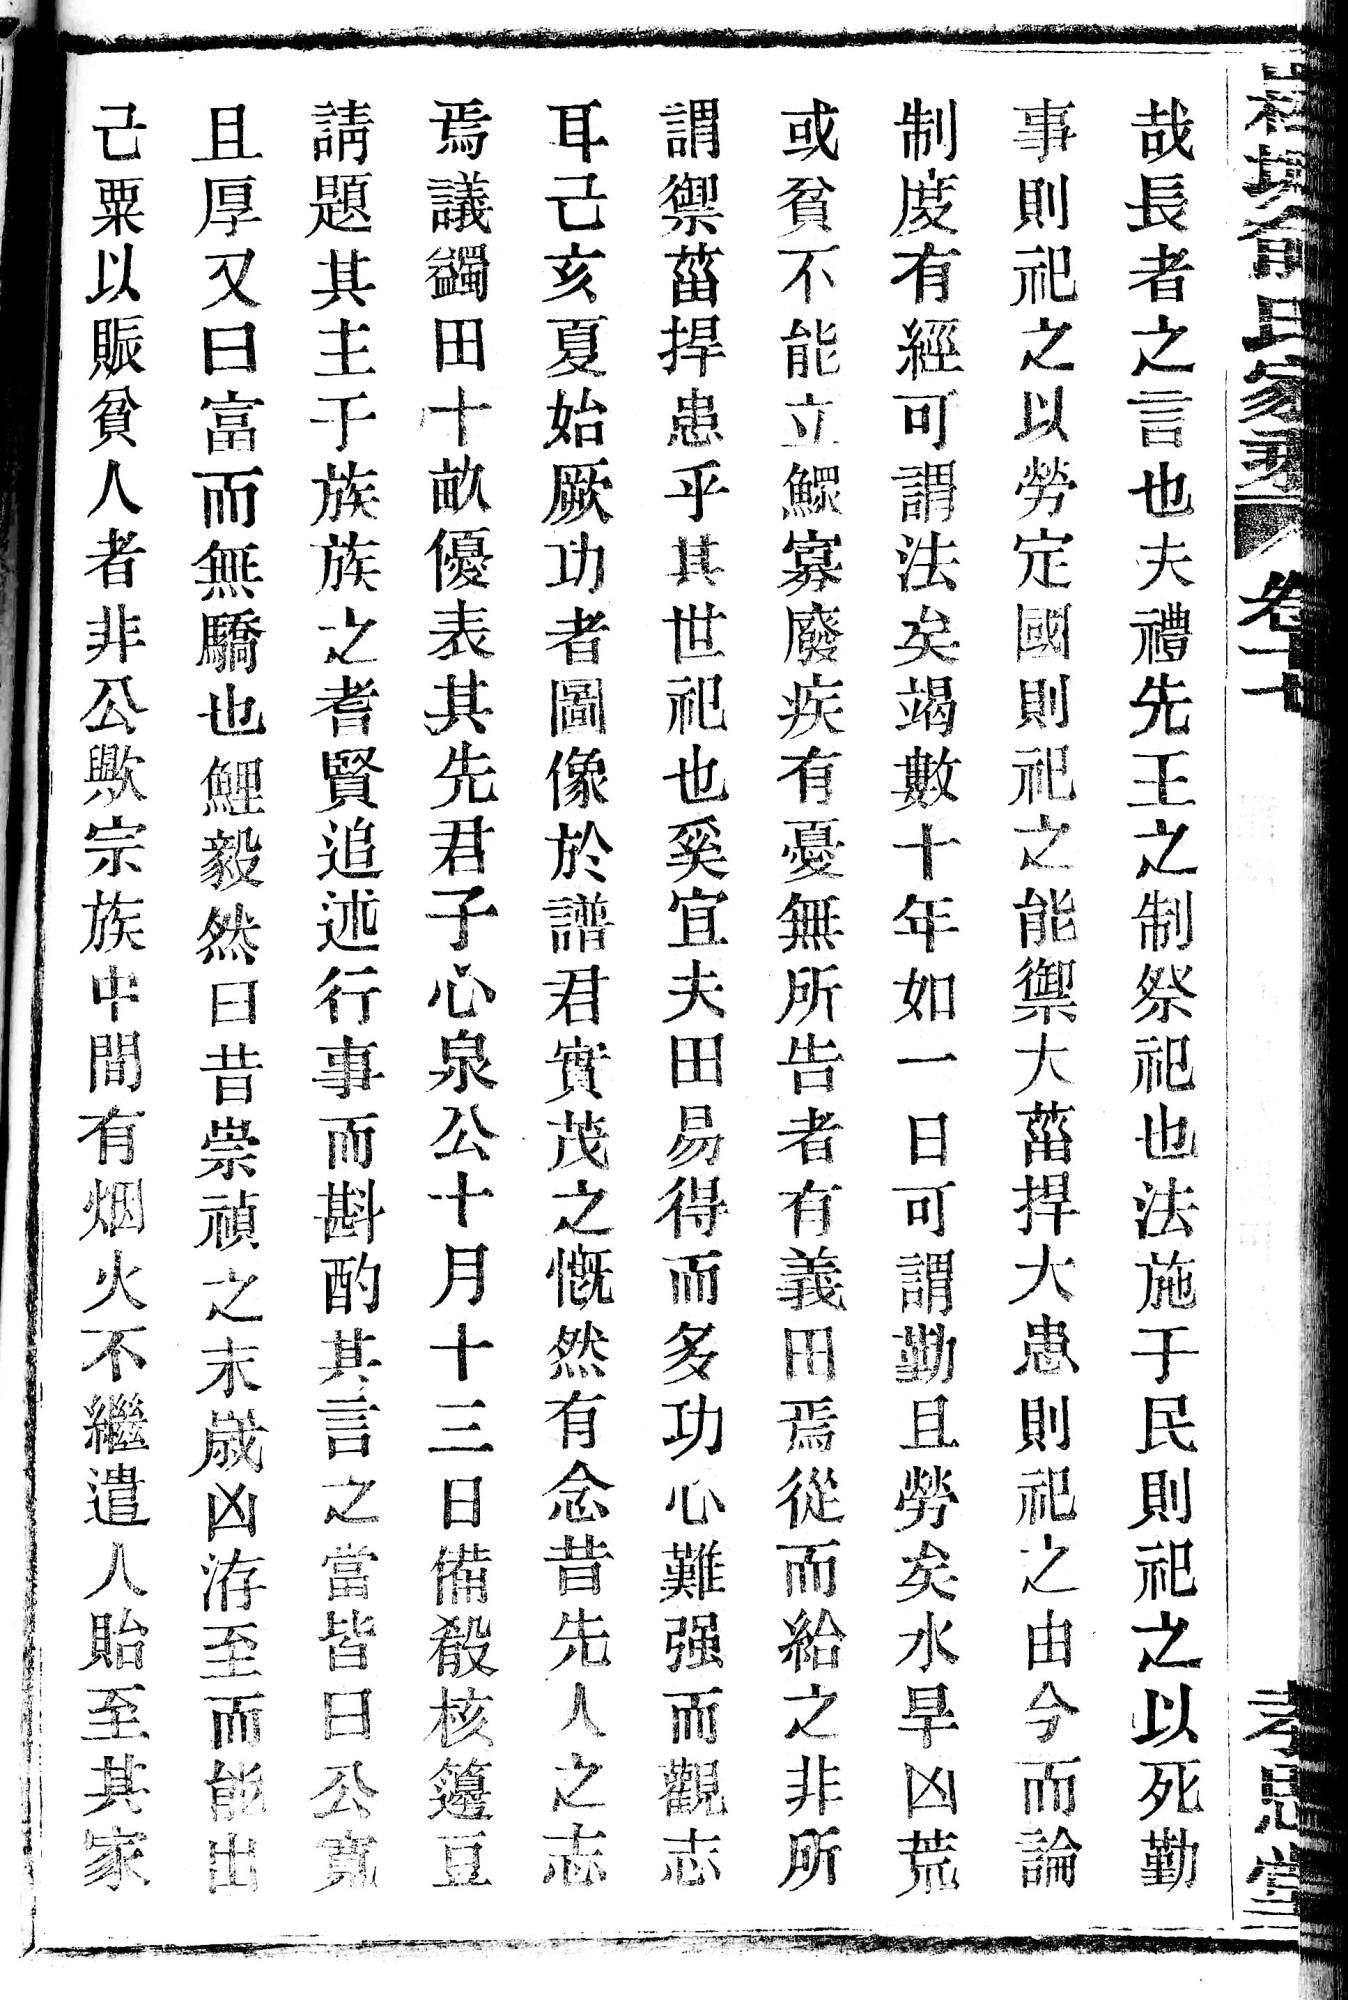 氏家乘 卷十七 孝思堂
哉長者之言也夫禮先王之制祭祀也法施于民則祀之以死勤
事則祀之以勞定國則祀之能禦大菑捍大患則祀之由今而論
制度有經可謂法矣竭數十年如一日可謂勤且勞矣水旱凶荒
或貧不能立鰥寡廢疾有憂無所告者有義田焉從而給之非所
謂禦菑捍患乎其世祀也奚宜夫田易得而多功心難强而觀志
耳己亥夏始厥功者圖像於譜君實茂之慨然有念昔先人之志
焉議蠲田十畝優表其先君子心泉公十月十三日備殽核籩豆
請題其主于族族之耆賢追述行事而斟酌其言之當皆曰公寬
且厚又曰富而無驕也鯉毅然曰昔崇禎之末歲凶洊至而能出
己粟以賑貧人者非公歟宗族中間有烟火不繼遣人貽至其家